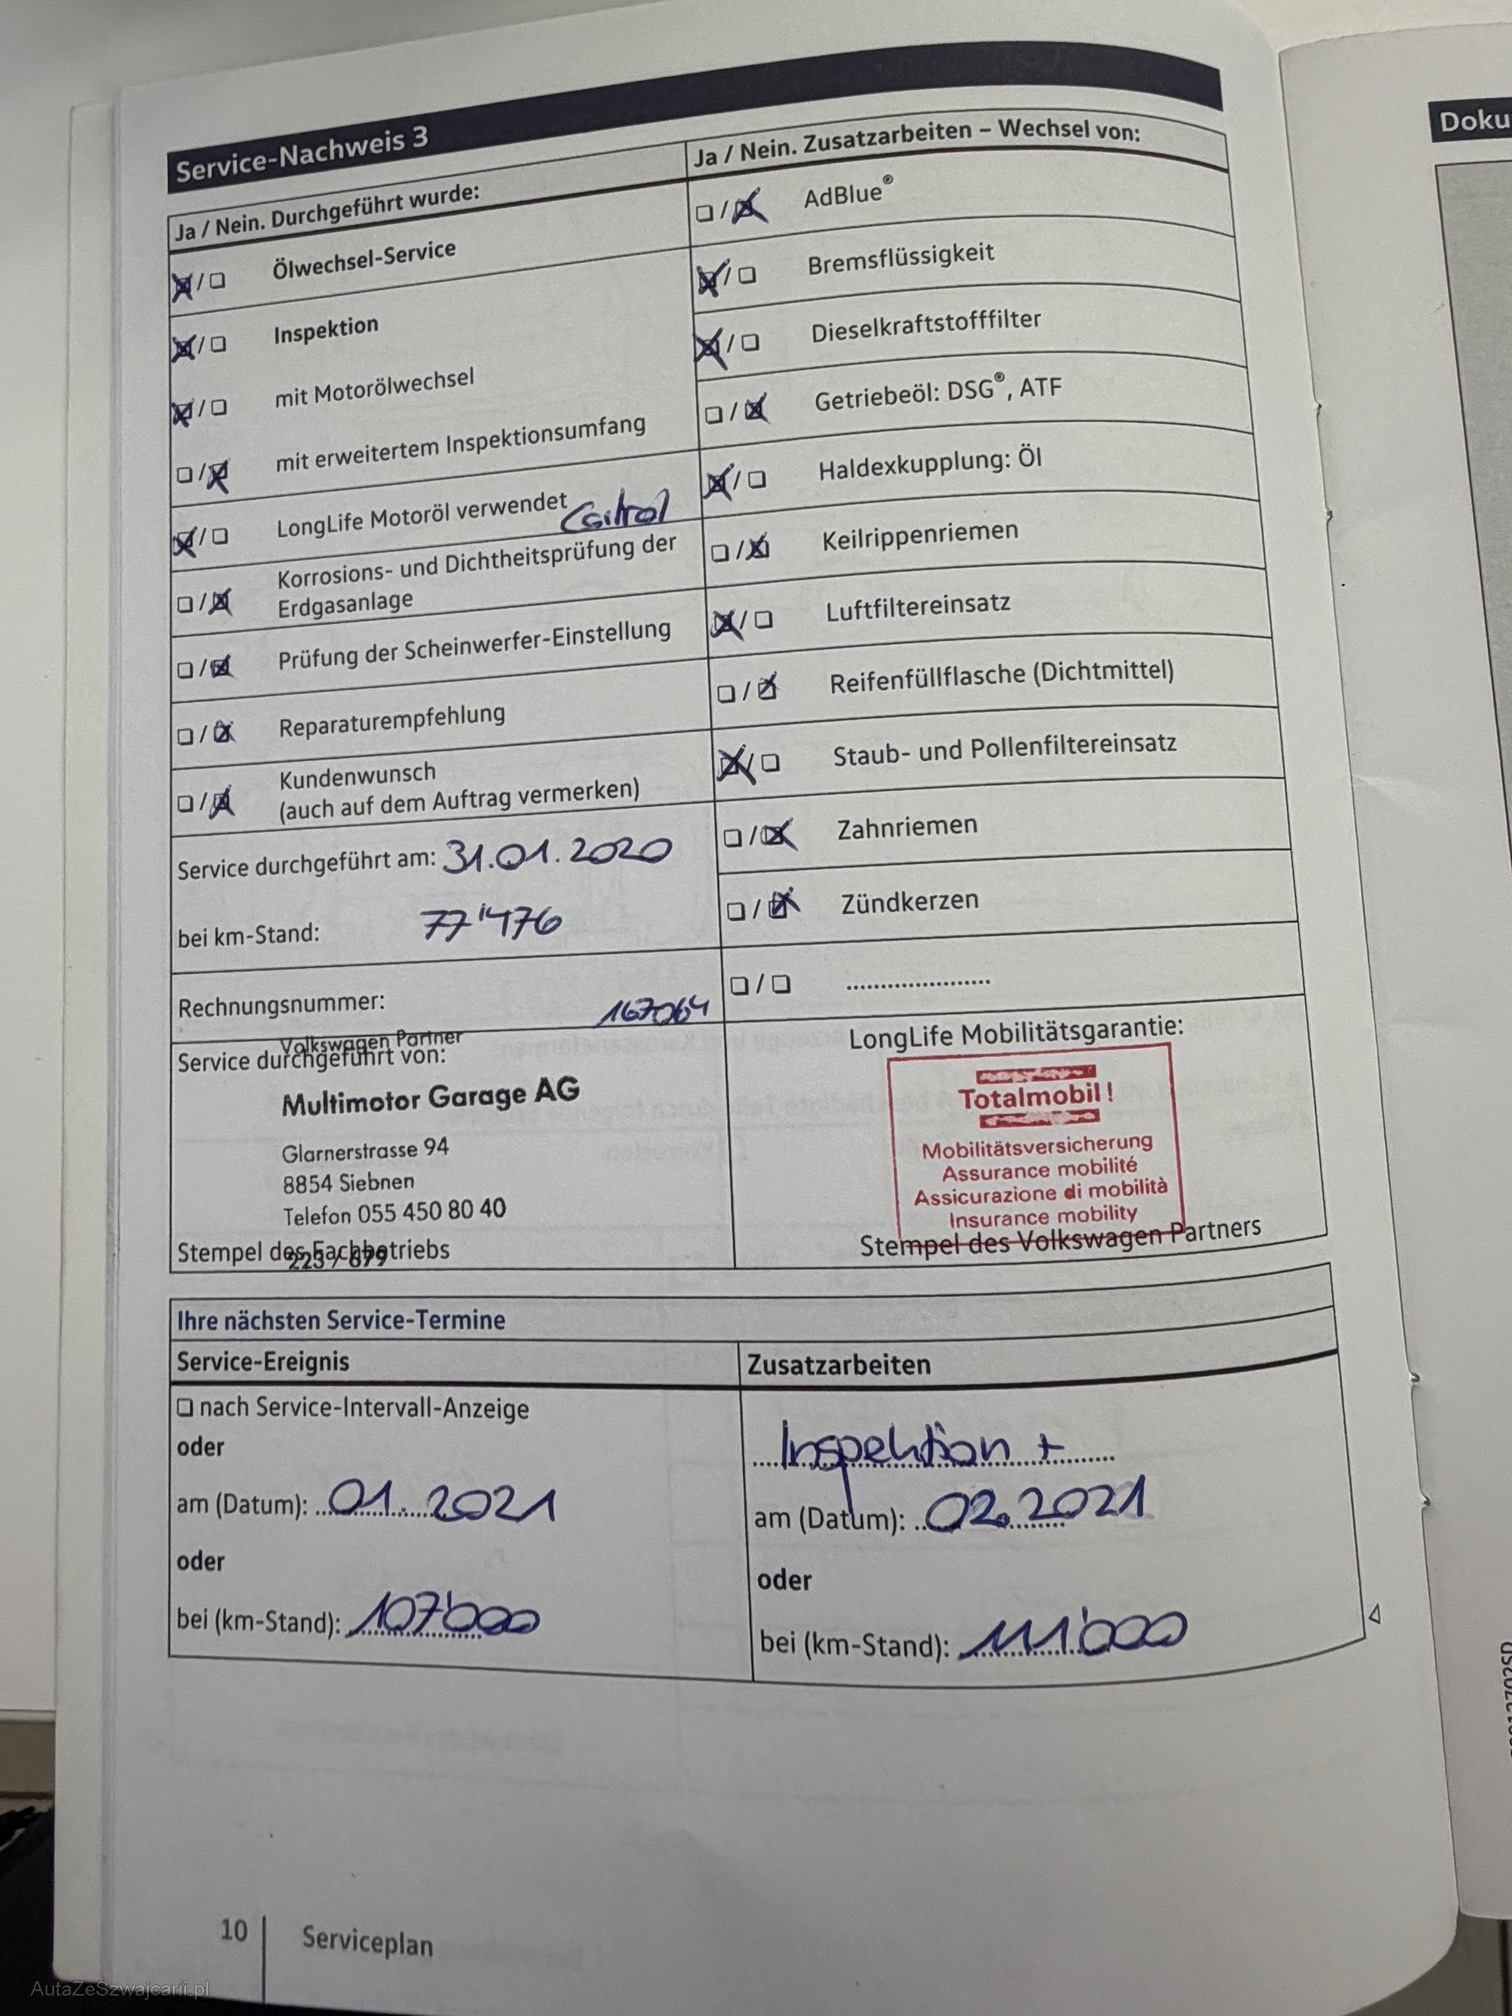 Service-Nachweis 3
Ja / Nein. Durchgeführt wurde:
Ölwechsel-Service
Inspektion
mit Motorölwechsel
mit erweitertem Inspektionsumfang
LongLife Motoröl verwendet
Korrosions- und Dichtheitsprüfung der
Erdgasanlage
Prüfung der Scheinwerfer-Einstellung
Reparaturempfehlung
Kundenwunsch
(auch auf dem Auftrag vermerken)
Service durchgeführt am: 31.01.2020
bei km-Stand: 77'476
Rechnungsnummer: 167064
Ja / Nein. Zusatzarbeiten – Wechsel von:
AdBlue®
Bremsflüssigkeit
Dieselkraftstofffilter
Getriebeöl: DSG®, ATF
Haldexkupplung: Öl
Keilrippenriemen
Luftfiltereinsatz
Reifenfüllflasche (Dichtmittel)
Staub- und Pollenfiltereinsatz
Zahnriemen
Zündkerzen
Volkswagen Partner
Service durchgeführt von:
Multimotor Garage AG
Glarnerstrasse 94
8854 Siebnen
Telefon 055 450 80 40
Stempel des Fachbetriebs
223 / 679
LongLife Mobilitätsgarantie:
Totalmobil!
Mobilitätsversicherung
Assurance mobilité
Assicurazione di mobilità
Insurance mobility
Stempel des Volkswagen Partners
Ihre nächsten Service-Termine
Service-Ereignis
nach Service-Intervall-Anzeige
oder
am (Datum): 01.2021
oder
bei (km-Stand): 107'000
Zusatzarbeiten
Inspektion +
am (Datum): 02.2021
oder
bei (km-Stand): 111'000
10
Serviceplan
Doku
AutaZeSzwajcarii.pl